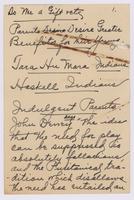 Be Me a Gift
1.
Parents
Desire
Benefits for
Tara Hu Mara Indians
Haskell Indians
Indulgent Parents.
John Dewey The idea
that the need for play
can be suppressed is
absolutely fallacious
and the Puritanical tra-
dition which disallows
the need has entailed an